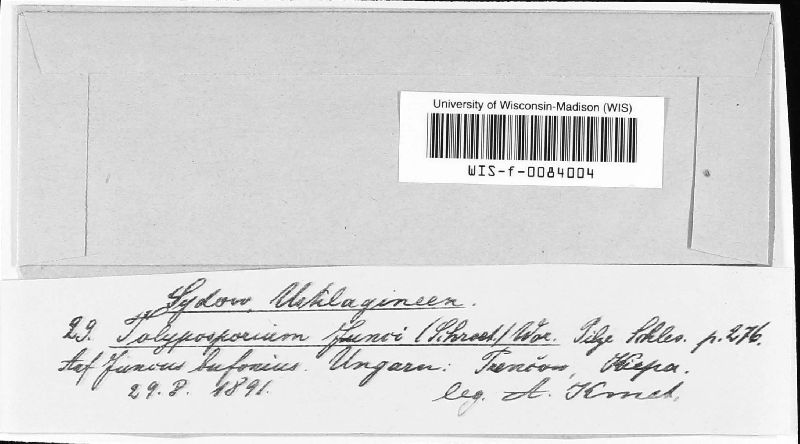 University of Wisconsin-Madison (WIS)
WIS-f-0084004
Sydow, Ustilagineen.
29. Tolyposporium Junci (Schroet.) Wor. Pilze Schles. p. 276.
Auf Juncus bufonius. Ungarn: Trenčow,
29. 8. 1891. leg. A. Kmet.